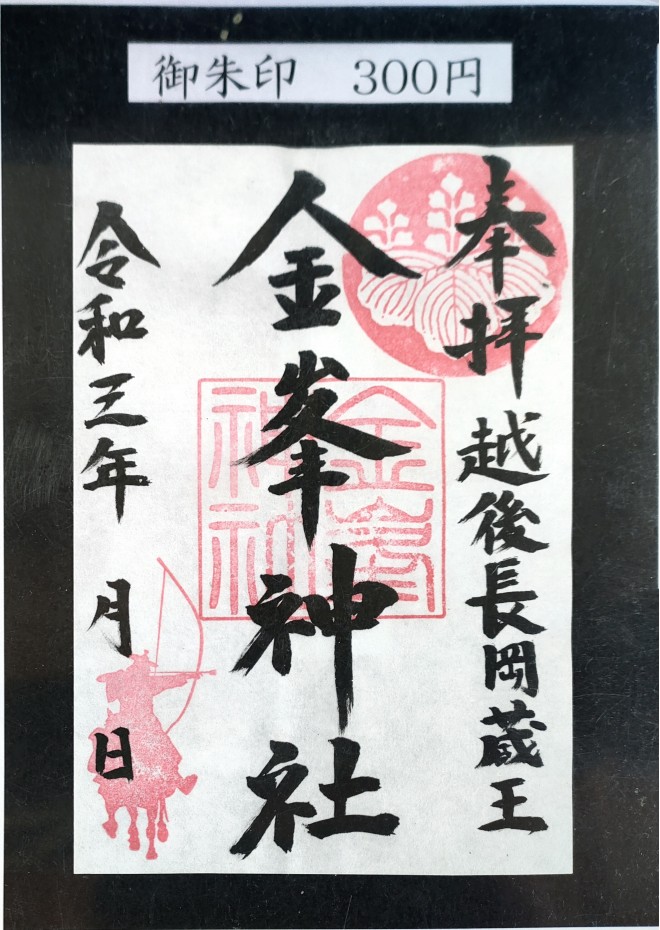 御朱印 300円
奉拝 越後長岡蔵王
金峯神社
令和三年 月 日